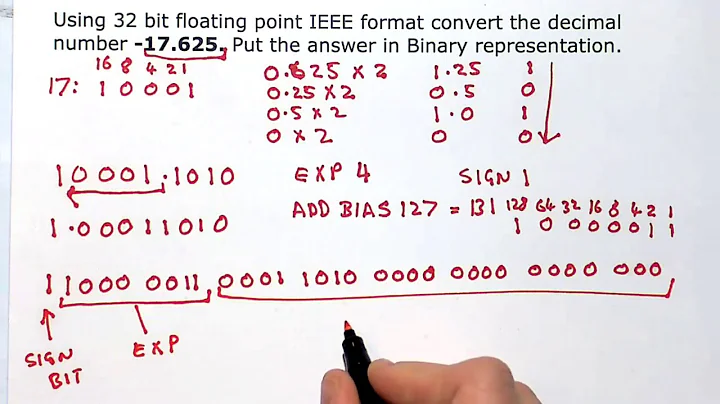 Using 32 bit floating point IEEE format convert the decimal
number -17.625. Put the answer in Binary representation.
16 8 4 2 1
17: 1 0 0 0 1
0.625 x 2 1.25 1
0.25 x 2 0.5 0
0.5 x 2 1.0 1
0 x 2 0 0
10001.1010 EXP 4 SIGN 1
ADD BIAS 127 = 131 128 64 32 16 8 4 2 1
1 0 0 0 0 0 1 1
1.00011010
1 1000 0011 0001 1010 0000 0000 0000 000
SIGN BIT
EXP